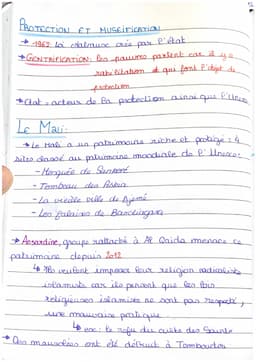 PROTECTION ET MUSEIFICATION
→ 1962 loi Malraux crée par l'état
→ GENTRIFICATION: les pauvres partent car il y a
réhabilitation et qui font l'objet de
protection
→ Etat: acteur de la protection ainsi que l'Unesco
Le Mali:
→ Le Mali a un patrimoine riche et protégé: 4
sites classé au patrimoine mondiale de l'Unesco:
- Mosquée de
- Tombeau des Askia
- La vieille ville de Djenné
- Les falaises de Bandiagara
→ Ansardine, groupe rattaché à Al Qaida menace ce
patrimoine depuis 2012
↳ Ils veulent imposer leur religion radicaliste
islamiste car ils pensent que les lois
religieuses islamiste ne sont pas respecté,
une mauvaise pratique
↳ exe: le refu du culte des Saints
→ Des mausolées ont été détruit à Tombouctou